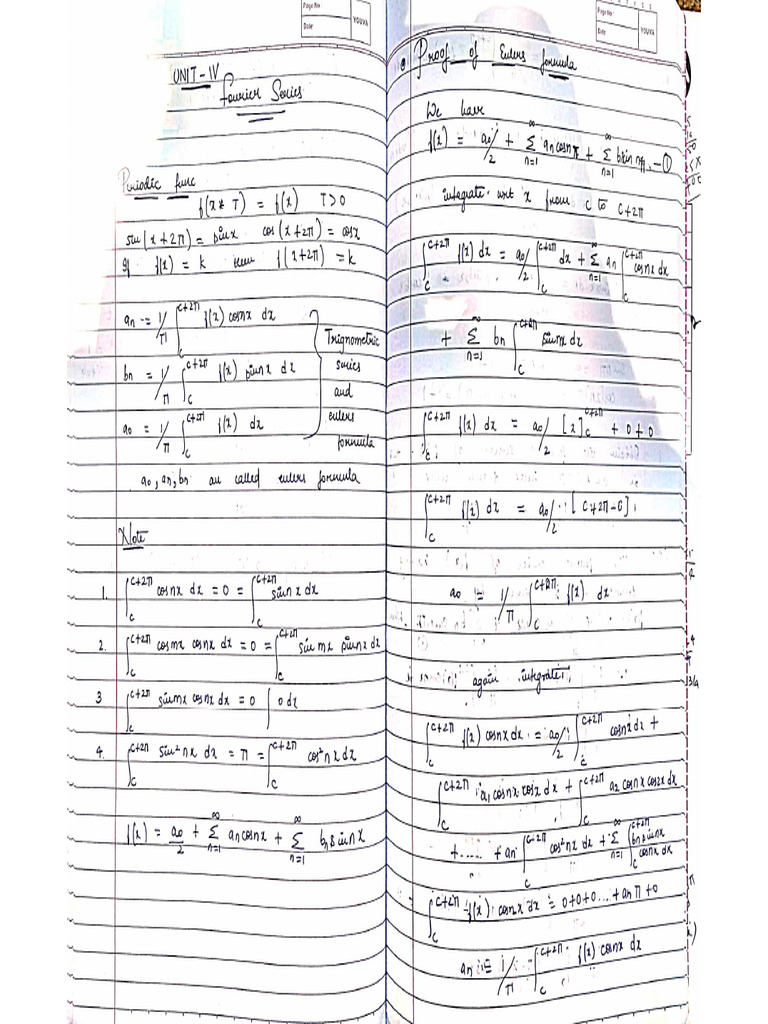 Page No
Date
YOUVA
UNIT-IV
Fourier Series
Periodic func
f(x+T) = f(x) T>0
sin(x+2π) = sinx cos(x+2π) = cosx
If f(x) = k then f(x+2π) = k
an = 1/π ∫_c^{c+2π} f(x) cosnx dx
bn = 1/π ∫_c^{c+2π} f(x) sinnx dx
a0 = 1/π ∫_c^{c+2π} f(x) dx
Trignometric
series
and
eulers
formula
a0, an, bn are called eulers formula
Note
1. ∫_c^{c+2π} cosnx dx = 0 = ∫_c^{c+2π} sinnx dx
2. ∫_c^{c+2π} cosmx cosnx dx = 0 = ∫_c^{c+2π} sin mx sinnx dx
3 ∫_c^{c+2π} sinmx cosnx dx = 0 ∫ 0 dx
4. ∫_c^{c+2π} sin²nx dx = π = ∫_c^{c+2π} cos²nx dx
f(x) = a0/2 + Σ_{n=1}^∞ an cosnx + Σ_{n=1}^∞ bn sinnx
Page No
Date
YOUVA
Proof of Eulers formula
We have
f(x) = a0/2 + Σ_{n=1}^∞ an cosnx + Σ_{n=1}^∞ bn sin nx - ①
integrate wrt x from c to c+2π
∫_c^{c+2π} f(x) dx = a0/2 ∫_c^{c+2π} dx + Σ_{n=1}^∞ an ∫_c^{c+2π} cosnx dx
+ Σ_{n=1}^∞ bn ∫_c^{c+2π} sinnx dx
∫_c^{c+2π} f(x) dx = a0/2 [x]_c^{c+2π} + 0 + 0
∫_c^{c+2π} f(x) dx = a0/2 [c+2π-c]
a0 = 1/π ∫_c^{c+2π} f(x) dx
again integrate
∫_c^{c+2π} f(x) cosnx dx = a0/2 ∫_c^{c+2π} cosnx dx +
∫_c^{c+2π} a1 cosnx cosx dx + ∫_c^{c+2π} a2 cosnx cos2x dx
+..... + an ∫_c^{c+2π} cos²nx dx + Σ_{n=1}^∞ ∫_c^{c+2π} bn sinnx cosnx dx
∫_c^{c+2π} f(x) cosnx dx = 0+0+0... + an π + 0
an = 1/π ∫_c^{c+2π} f(x) cosnx dx